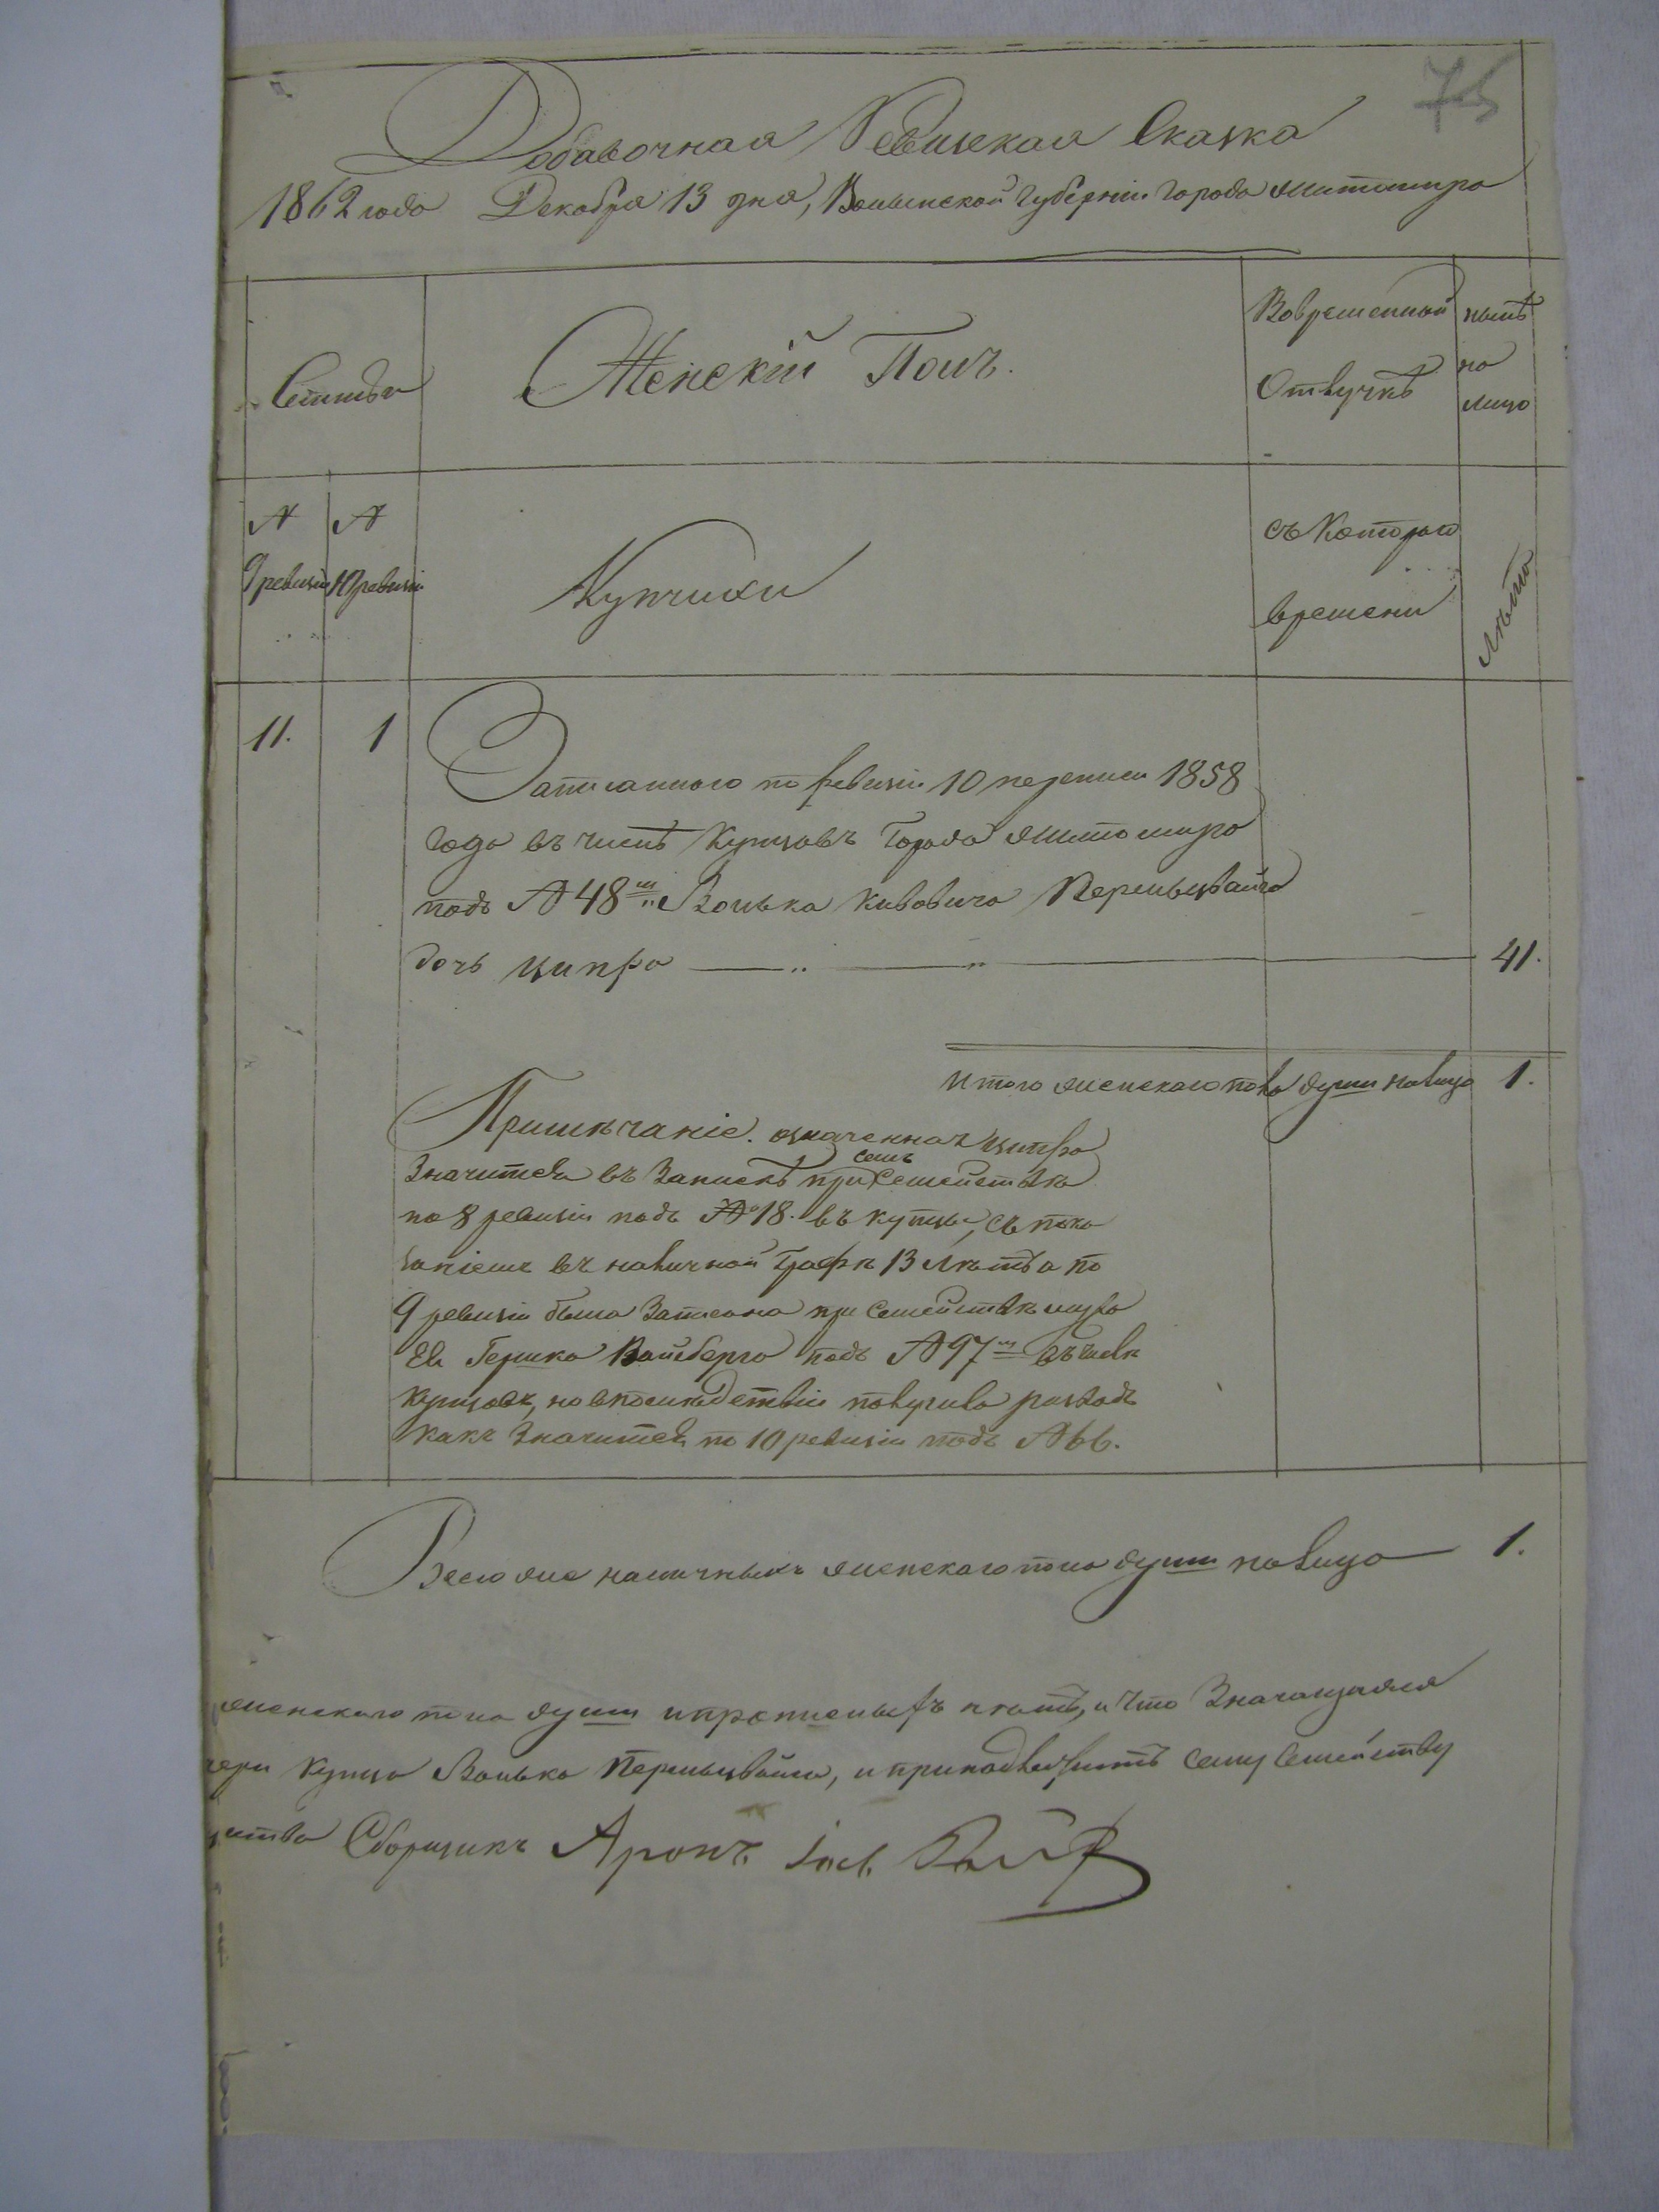 75
Добавочная Ревизская Сказка
1862 года Декабря 13 дня, Волынской Губерніи города Житомира
Семьи
Женскій Полъ.
Вовременной
Отлучкѣ
нынѣ
на
лицо
№
9 ревизіи
№
10 ревизіи
Купчихи
съ Котораго
времени
лѣта
11. 1
Записаннаго по ревизіи 10 переписи 1858
года въ числѣ Купцовъ Города Житомира
подъ № 48 м Волька Кивовича Перельцвайга
дочь Ципра 41.
Итого женскаго пола душъ налицо 1.
Примѣчаніе. означенная Ципра
Значится въ Запискѣ при семъ Семействѣ
по 8 ревизіи подъ № 18. въ купцы, съ пока
заніемъ въ наличной графѣ 13 лѣтъ а по
9 ревизіи была Записана при Семействѣ мужа
Ея Гершка Вайсберга подъ № 97 м въ числѣ
Купцовъ, но впослѣдствіи получила разводъ
какъ Значится по 10 ревизіи подъ № 66.
Всего же наличныхъ женскаго пола душъ налицо 1.
женскаго пола душъ и прописныхъ нѣтъ, и что Значащаяся
чери Купца Волька Перельцвайга, и принадлежитъ сему Семейству
Сборщикъ Аронъ